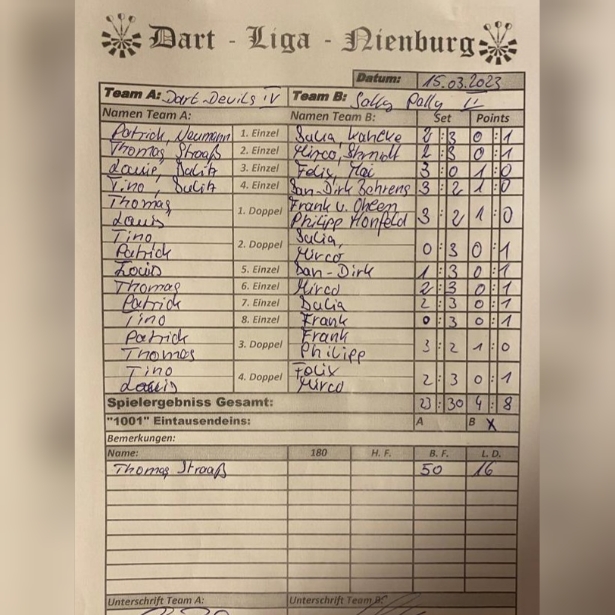 Dart - Liga - Nienburg
Datum: 15.03.2023
Team A: Dart Devils IV Team B: Sally Polly II
Namen Team A: Namen Team B: Set Points
Patrick, Neumann 1. Einzel Julia 2 : 3 0 : 1
Thomas, Straaß 2. Einzel Mirco, 2 : 3 0 : 1
Louis, 3. Einzel Felix, Mai 3 : 0 1 : 0
Tino, 4. Einzel Jan-Dirk Behrens 3 : 2 1 : 0
Thomas, Frank v. Oheen
Louis 1. Doppel Philipp Honfeld 3 : 2 1 : 0
Tino Julia,
Patrick 2. Doppel Mirco 0 : 3 0 : 1
Louis 5. Einzel Jan-Dirk 1 : 3 0 : 1
Thomas 6. Einzel Mirco 2 : 3 0 : 1
Patrick 7. Einzel Julia 2 : 3 0 : 1
Tino 8. Einzel Frank 0 : 3 0 : 1
Patrick Frank
Thomas 3. Doppel Philipp 3 : 2 1 : 0
Tino Felix
Louis 4. Doppel Mirco 2 : 3 0 : 1
Spielergebniss Gesamt: 23 : 30 4 : 8
"1001" Eintausendeins: A B X
Bemerkungen:
Name: 180 H. F. B. F. L. D.
Thomas Straaß 50 16
Unterschrift Team A: Unterschrift Team B: